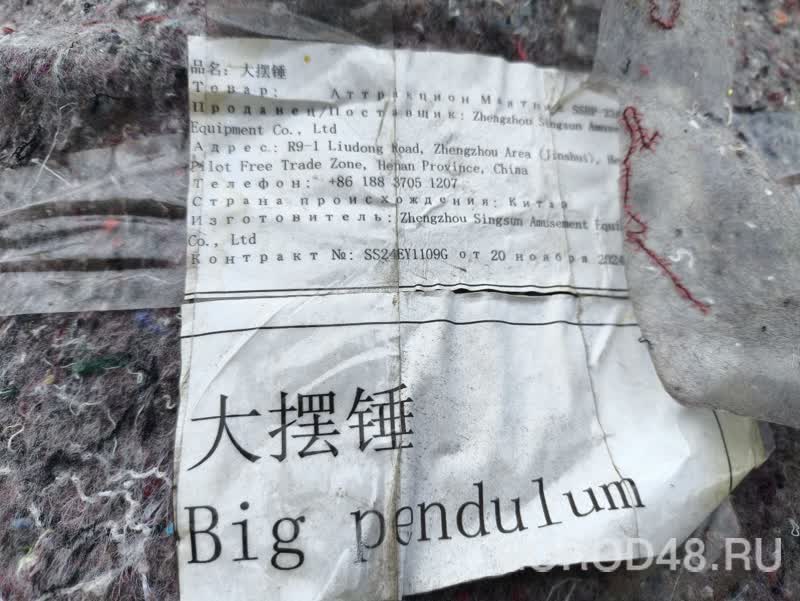 品名：大摆锤
Товар: Аттракцион Маятник SSBP
Продавец/Поставщик: Zhengzhou Singsun Amuse
Equipment Co., Ltd
Адрес: R9-1 Liudong Road, Zhengzhou Area (Jinshui), He
Pilot Free Trade Zone, Henan Province, China
Телефон: +86 188 3705 1207
Страна происхождения: Китай
Изготовитель: Zhengzhou Singsun Amusement Equi
Co., Ltd
Контракт №: SS24EY1109G от 20 ноября 2024
大摆锤
Big pendulum
OROD48.RU